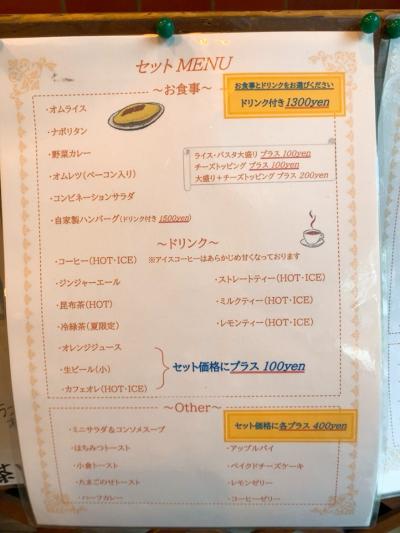 セット MENU
お食事とドリンクをお選びください
ドリンク付き 1300yen
～お食事～
・オムライス
・ナポリタン
・野菜カレー
・オムレツ(ベーコン入り)
・コンビネーションサラダ
・自家製ハンバーグ(ドリンク付き 1500yen)
ライス・パスタ大盛り プラス 100yen
チーズトッピング プラス 100yen
大盛り＋チーズトッピング プラス 200yen
～ドリンク～
・コーヒー(HOT・ICE) ※アイスコーヒーはあらかじめ甘くなっております
・ジンジャーエール
・昆布茶(HOT)
・冷緑茶(夏限定)
・ストレートティー(HOT・ICE)
・ミルクティー(HOT・ICE)
・レモンティー(HOT・ICE)
・オレンジジュース
・生ビール(小)
・カフェオレ(HOT・ICE)
セット価格にプラス 100yen
～Other～
セット価格に各プラス 400yen
・ミニサラダ＆コンソメスープ
・はちみつトースト
・小倉トースト
・たまごのせトースト
・ハーフカレー
・アップルパイ
・ベイクドチーズケーキ
・レモンゼリー
・コーヒーゼリー